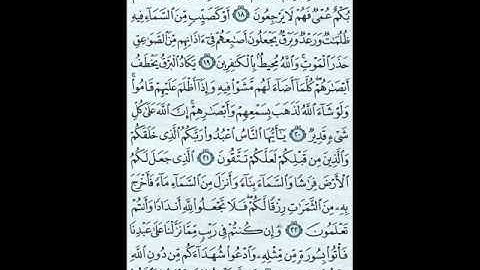 بُكْمٌ عُمْىٌ فَهُمْ لَا يَرْجِعُونَ ١٨ أَوْ كَصَيِّبٍ مِّنَ السَّمَآءِ فِيهِ
ظُلُمَٰتٌ وَرَعْدٌ وَبَرْقٌ يَجْعَلُونَ أَصَٰبِعَهُمْ فِىٓ ءَاذَانِهِم مِّنَ الصَّوَٰعِقِ
حَذَرَ الْمَوْتِ ۚ وَاللَّهُ مُحِيطٌۢ بِالْكَٰفِرِينَ ١٩ يَكَادُ الْبَرْقُ يَخْطَفُ
أَبْصَٰرَهُمْ ۖ كُلَّمَآ أَضَآءَ لَهُم مَّشَوْا۟ فِيهِ وَإِذَآ أَظْلَمَ عَلَيْهِمْ قَامُوا۟ ۚ
وَلَوْ شَآءَ اللَّهُ لَذَهَبَ بِسَمْعِهِمْ وَأَبْصَٰرِهِمْ ۚ إِنَّ اللَّهَ عَلَىٰ كُلِّ
شَىْءٍ قَدِيرٌ ٢٠ يَٰٓأَيُّهَا النَّاسُ اعْبُدُوا۟ رَبَّكُمُ الَّذِى خَلَقَكُمْ
وَالَّذِينَ مِن قَبْلِكُمْ لَعَلَّكُمْ تَتَّقُونَ ٢١ الَّذِى جَعَلَ لَكُمُ
الْأَرْضَ فِرَٰشًا وَالسَّمَآءَ بِنَآءً وَأَنزَلَ مِنَ السَّمَآءِ مَآءً فَأَخْرَجَ
بِهِۦ مِنَ الثَّمَرَٰتِ رِزْقًا لَّكُمْ ۖ فَلَا تَجْعَلُوا۟ لِلَّهِ أَندَادًا وَأَنتُمْ
تَعْلَمُونَ ٢٢ وَإِن كُنتُمْ فِى رَيْبٍ مِّمَّا نَزَّلْنَا عَلَىٰ عَبْدِنَا
فَأْتُوا۟ بِسُورَةٍ مِّن مِّثْلِهِۦ وَادْعُوا۟ شُهَدَآءَكُم مِّن دُونِ اللَّهِ